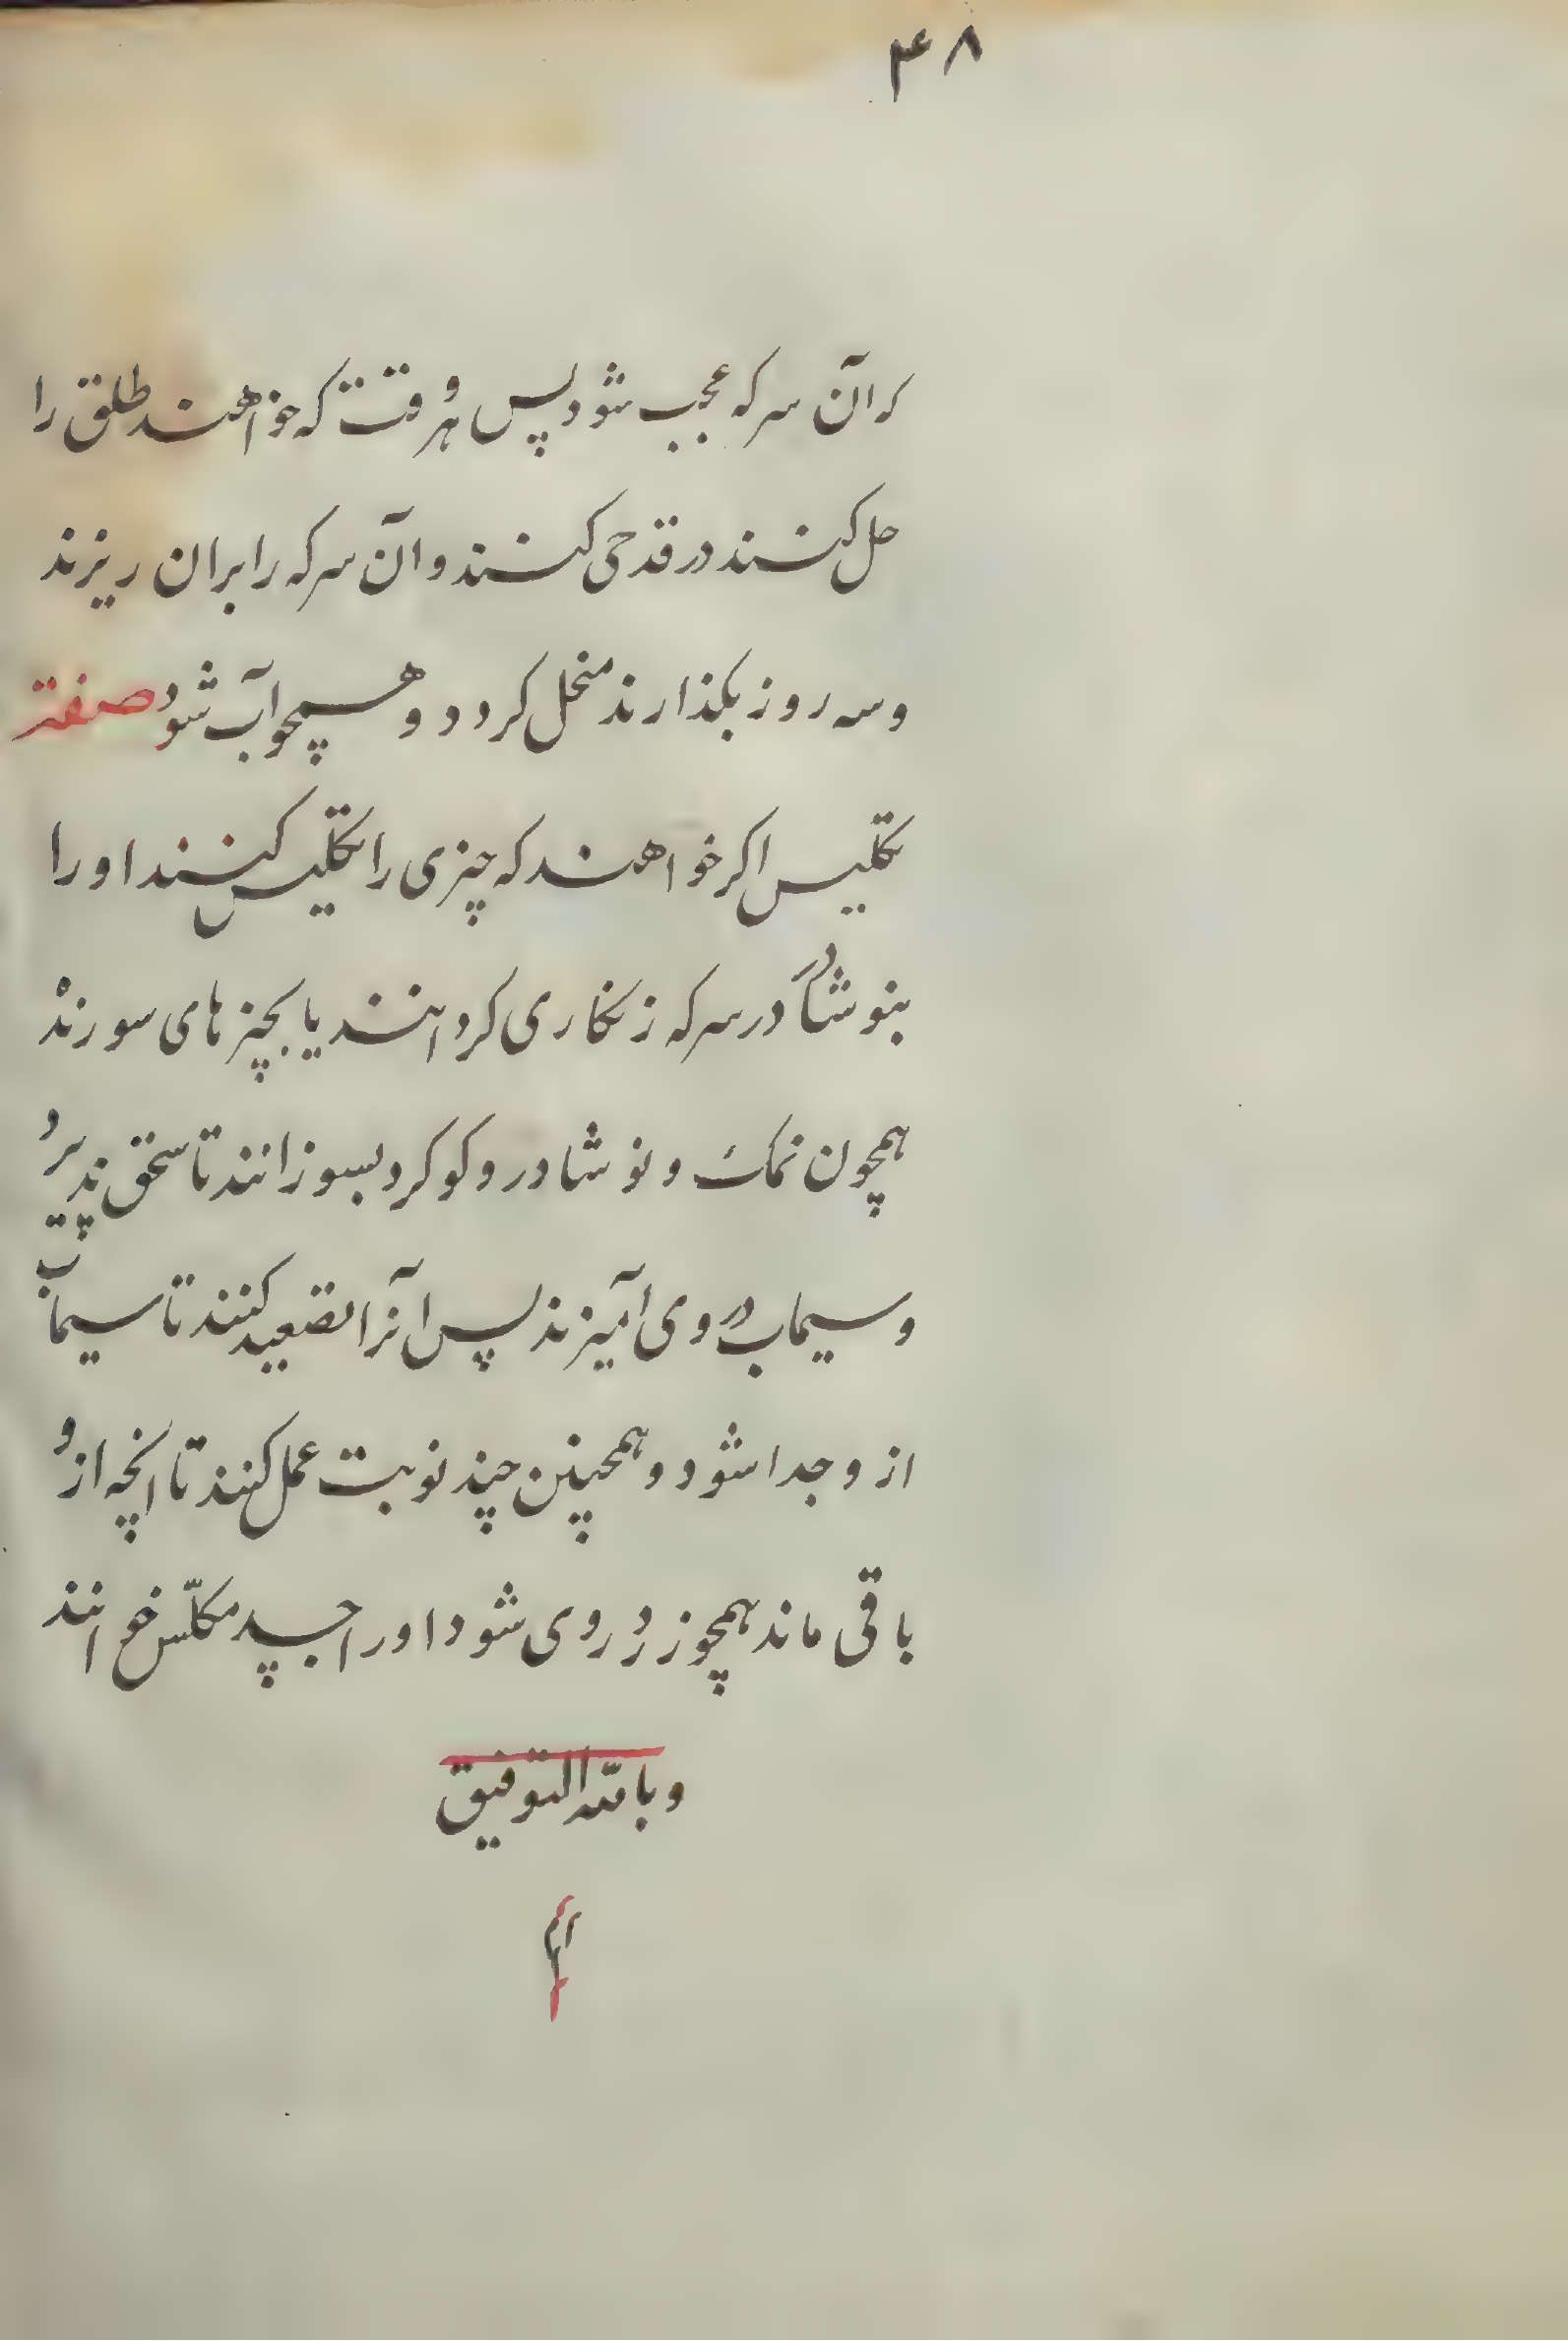 ۴۸
که آن سرکه عجب شود پس هر وقت که خواهند طلق را
حل کنند در قدحی کنند و آن سرکه را بران ریزند
و سه روز بکذارند منحل کردد و همچو آب شود صفت
تکلیس اکر خواهند که چیزی را تکلیس کنند او را
بنوشادر در سرکه زنکاری کردانند یا بچیزهای سورنده
همچون نمک و نوشادر و کوکرد بسوزانند تا سحق پذیرد
و سیماب در وی آمیزند پس آنرا تصعید کنند تا سیماب
ازو جدا شود و همچنین چند نوبت عمل کنند تا انچه ازو
باقی ماند همچو زروروی شود او را جسد مکلّس خوانند
و بالله التوفیق